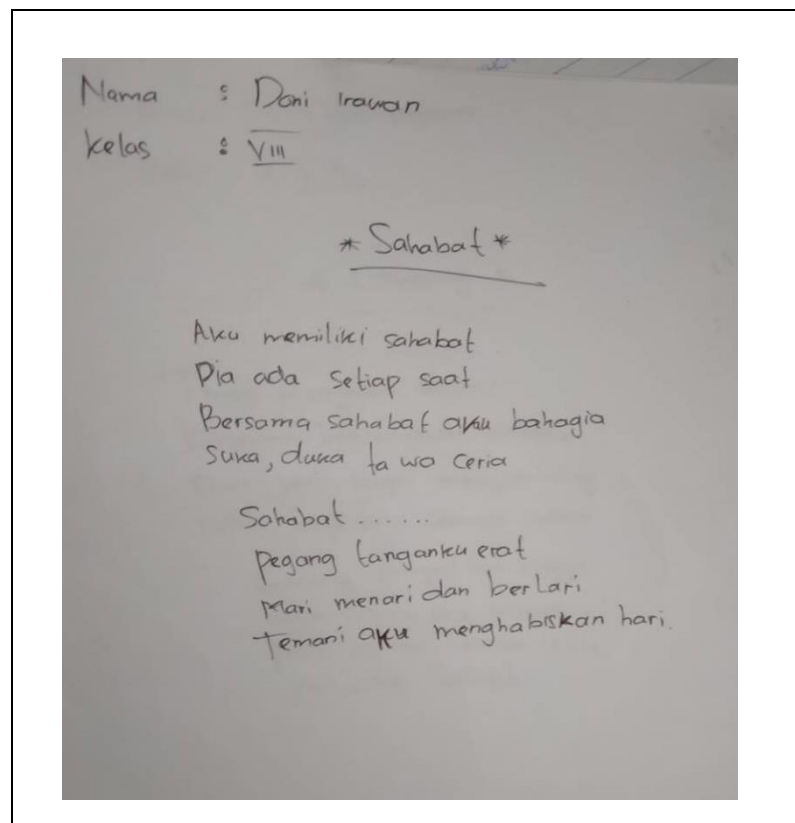 Nama : Doni Irawan
Kelas : VIII
* Sahabat *
Aku memiliki sahabat
Dia ada setiap saat
Bersama sahabat aku bahagia
Suka, duka tawa ceria
Sahabat ......
Pegang tanganku erat
Mari menari dan berlari
Temani aku menghabiskan hari.